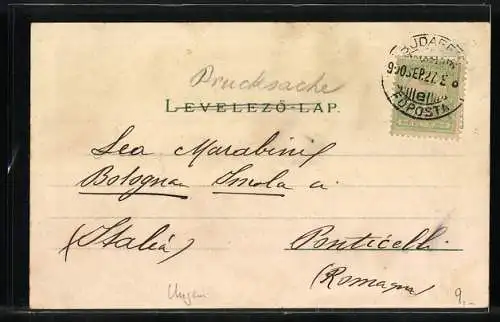 BUDAPEST
900 SEP. 27.
FŐPOSTA
Drucksache
LEVELEZŐ-LAP.
Lea Marabini
Bologna Imola
(Italia)
Ponticelli
(Romagna)
Ungarn
9,-